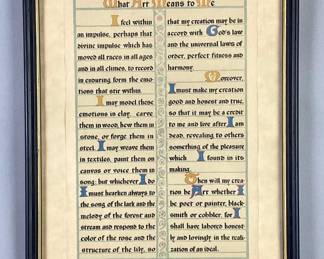 What Art Means to Me
I feel within
an impulse, perhaps that
divine impulse which has
moved all races in all ages
and in all climes, to record
in enduring form the emo-
tions that stir within.
I may model these
emotions in clay, carve
them in wood, hew them in
stone, or forge them in
steel. I may weave them
in textiles, paint them on
canvas or voice them in
song: but whichever I do
I must hearken always to
the song of the lark and the
melody of the forest and
stream and respond to the
color of the rose and the
structure of the lily, so
that my creation may be in
accord with God's law
and the universal laws of
order, perfect fitness and
harmony.
Moreover,
I must make my creation
good and honest and true,
so that it may be a credit
to me and live after I am
dead, revealing to others
something of the pleasure
which I found in its
making.
Then will my crea
tion be Art whether I
be poet or painter, black-
smith or cobbler, for I
shall have labored honest-
ly and lovingly in the reali-
zation of an ideal.